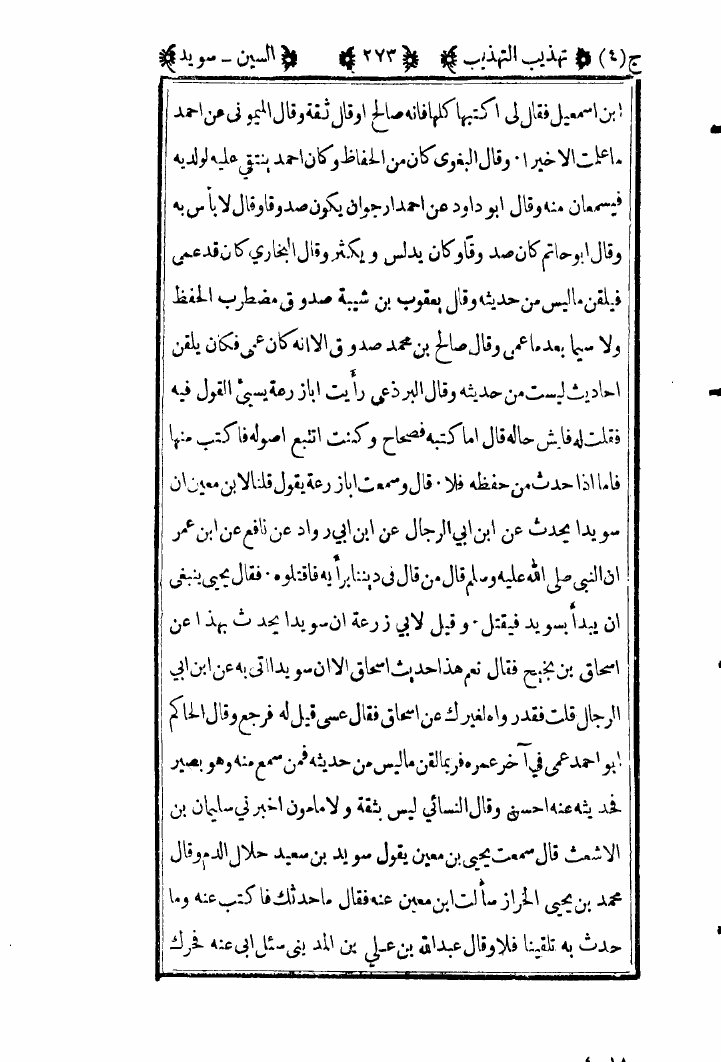 ج(٤) تهذيب التهذيب ٢٧٣ السين - سويد
ابن اسمعيل فقال لى اكتبها كلها فانه صالح او قال ثقة وقال الميمونى عن احمد
ماعلمت الاخيرا · وقال البغوى كان من الحفاظ وكان احمد ينتقي عليه لولديه
فيسمعان منه وقال ابو داود عن احمد ارجو ان يكون صدوقا وقال لا بأس به
وقال ابو حاتم كان صدوقا وكان يدلس ويكثر وقال البخاري كان قد عمى
فيلقن ماليس من حديثه وقال يعقوب بن شيبة صدوق مضطرب الحفظ
ولا سيما بعد ما عمى وقال صالح بن محمد صدوق الا انه كان عمى فكان يلقن
احاديث ليست من حديثه وقال البرذعى رأيت ابازرعة يسيئ القول فيه
فقلت له فايش حاله قال اما كتبه فصحاح وكنت اتتبع اصوله فاكتب منها
فاما اذا حدث من حفظه فلا · قال وسمعت ابازرعة يقول قلنا لابن معين ان
سويدا يحدث عن ابن ابي الرجال عن ابن ابي رواد عن نافع عن ابن عمر
ان النبي صلى الله عليه وسلم قال من قال فى ديننا برأيه فاقتلوه · فقال يحيى ينبغى
ان يبدأ بسويد فيقتل · وقيل لابي زرعة ان سويدا يحدث بهذا عن
اسحاق بن نجيح فقال نعم هذا حديث اسحاق الا ان سويدا اتى به عن ابن ابي
الرجال قلت فقد رواه لغيرك عن اسحاق فقال عسى قيل له فرجع وقال الحاكم
ابو احمد عمى في آخر عمره فربما لقن ماليس من حديثه فمن سمع منه وهو بصير
فحديثه عنه احسن وقال النسائي ليس بثقة ولا مامون اخبرني سليمان بن
الاشعث قال سمعت يحيى بن معين يقول سويد بن سعيد حلال الدم وقال
محمد بن يحيى الخراز سألت ابن معين عنه فقال ما حدثك فاكتب عنه وما
حدث به تلقينا فلا وقال عبدالله بن علي بن المدينى سئل ابى عنه فحرك